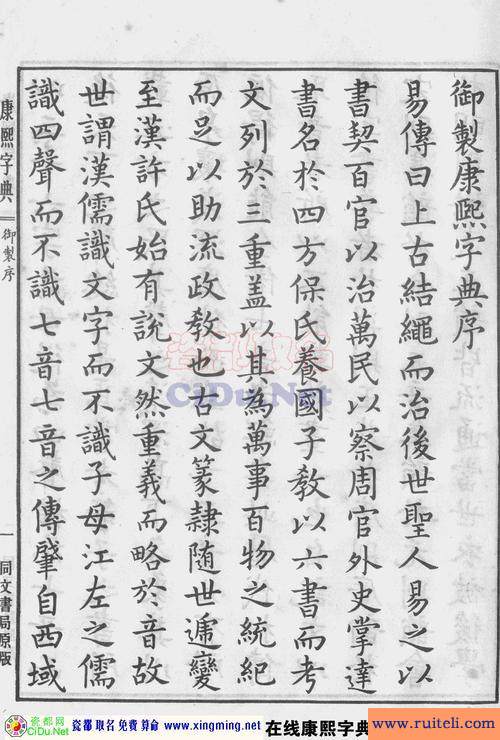 御製康熙字典序
易傳曰上古結繩而治後世聖人易之以
書契百官以治萬民以察周官外史掌達
書名於四方保氏養國子教以六書而考
文列於三重盖以其為萬事百物之統紀
而足以助流政教也古文篆隸隨世遞變
至漢許氏始有說文然重義而略於音故
世謂漢儒識文字而不識子母江左之儒
識四聲而不識七音七音之傳肇自西域
康熙字典
御製序
一
同文書局原版
瓷都取名
CiDu.Net
瓷都网
CiDu.Net
瓷都 取名 免费 算命 www.xingming.net 在线康熙字典
www.ruiteli.com